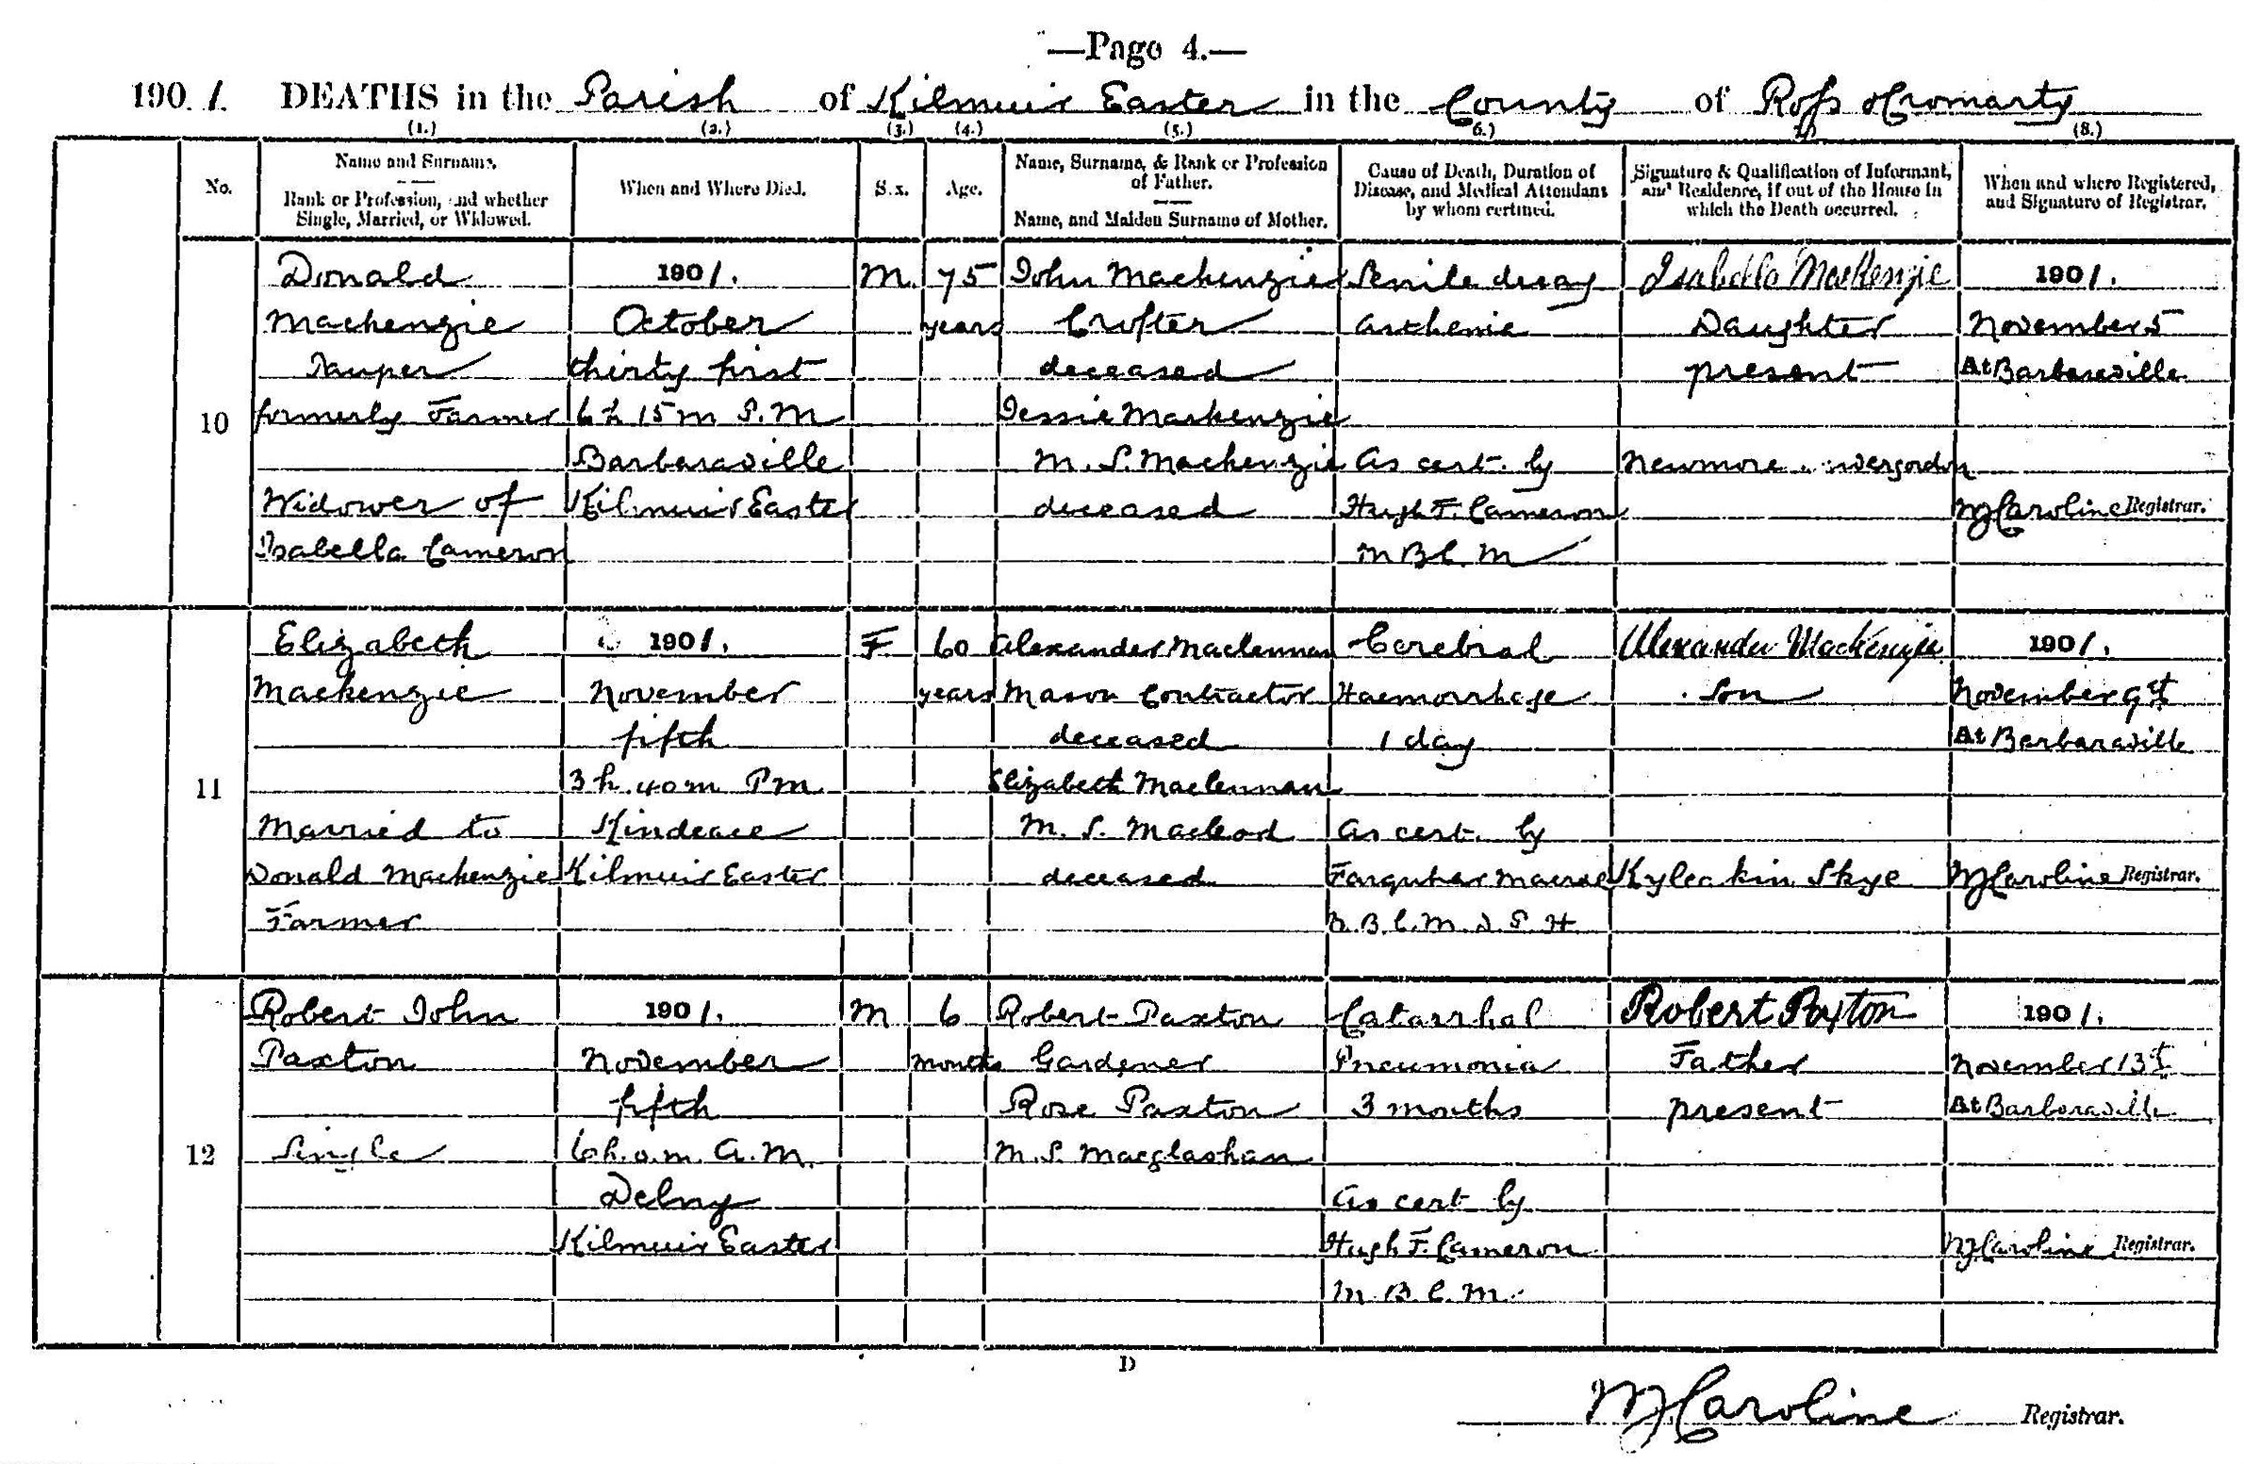 —Page 4.—
1901. DEATHS in the Parish of Kilmuir Easter in the County of Ross & Cromarty
(1.) (2.) (3.) (4.) (5.) 6.) (8.)
No.
Name and Surname.
Rank or Profession, and whether
Single, Married, or Widowed.
When and Where Died.
Sex.
Age.
Name, Surname, & Rank or Profession
of Father.
Name, and Maiden Surname of Mother.
Cause of Death, Duration of
Disease, and Medical Attendant
by whom certified.
Signature & Qualification of Informant,
and Residence, if out of the House in
which the Death occurred.
When and where Registered,
and Signature of Registrar.
10
Donald
Mackenzie
Pauper
formerly Farmer
Widower of
Isabella Cameron
1901.
October
thirty first
6h 15m P.M
Barbaraville
Kilmuir Easter
M.
75
years
John Mackenzie
Crofter
deceased
Jessie Mackenzie
M. S. Mackenzie
deceased
Senile decay
Asthenia
As cert. by
Hugh F. Cameron
M B C. M
Isabella MacKenzie
Daughter
present
Newmore Invergordon
1901.
November 5
At Barbaraville
Registrar.
11
Elizabeth
Mackenzie
Married to
Donald Mackenzie
Farmer
1901.
November
fifth
3 h. 40 m P m.
Kindeace
Kilmuir Easter
F
60
years
Alexander Maclennan
Mason Contractor
deceased
Elizabeth Maclennan
M. S. Macleod
deceased
Cerebral
Haemorrhage
1 day
As cert. by
Farquhar Macrae
M. B. C. M. D. P. H
Alexander Mackenzie
Son
Kyleakin Skye
1901.
November 9th
At Barbaraville
Registrar.
12
Robert John
Paxton
Single
1901.
November
fifth
6 h. 0. m. A. M.
Delny
Kilmuir Easter
M
6
months
Robert Paxton
Gardener
Rose Paxton
M. S. Macglashan
Catarrhal
Pneumonia
3 months
As cert by
Hugh F. Cameron
M. B. C. M.
Robert Paxton
Father
present
1901.
November 13th
At Barbaraville
Registrar.
D
Registrar.